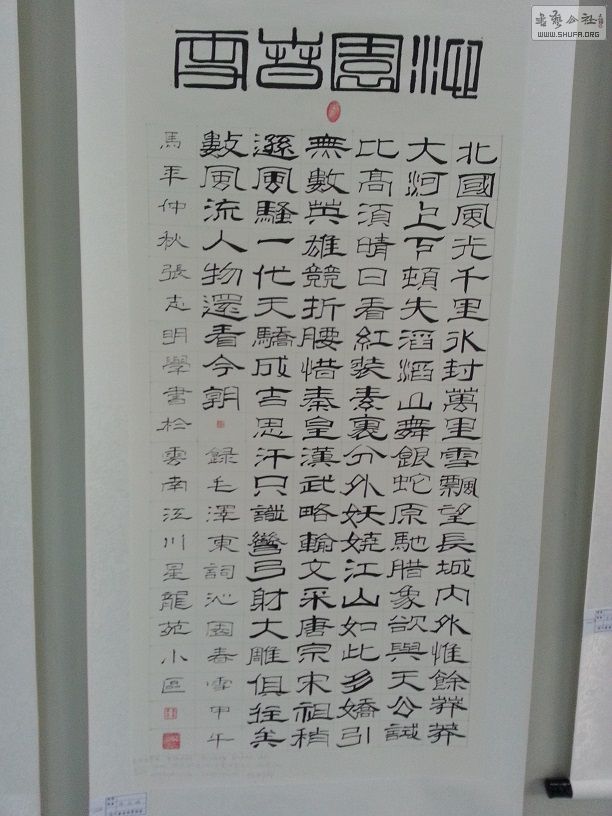 書藝公社
WWW.SHUFA.ORG
沁園春雪
北國風光千里冰封萬里雪飄望長城內外惟餘莽莽
大河上下頓失滔滔山舞銀蛇原馳腊象欲與天公試
比高須晴日看紅裝素裹分外妖嬈江山如此多嬌引
無數英雄競折腰惜秦皇漢武略輸文采唐宗宋祖稍
遜風騷一代天驕成吉思汗只識彎弓射大雕俱往矣
數風流人物還看今朝 錄毛澤東詞沁園春雪甲午
馬年仲秋張志明學書於雲南江川星龍苑小區